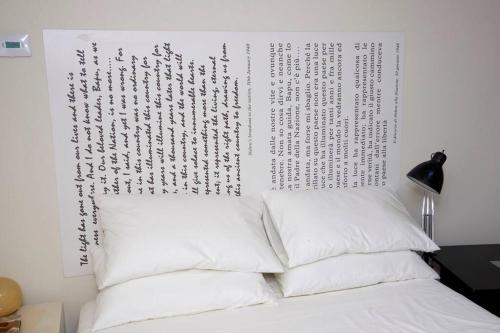 The light has gone out from our lives and there is
ness everywhere. And I do not know what to tell
y it. Our beloved leader, Bapu, as we
ther of the Nation, is no more....
out, I said, and yet I was wrong. For
e in this country was no ordinary
at has illuminated this country for
y years will illumine this country for
, and a thousand years later that light
in this country, and the world will
ll give solace to innumerable hearts.
epresented something more than the
ent, it represented the living, eternal
ng us of the right path, drawing us from
this ancient country to freedom.
Nehru's broadcast to the nation, 30th January 1948
è andata dalle nostre vite e ovunque
tenebre. Non so cosa dirvi e neanche
a nostra amata guida, Bapu, come lo
il Padre della Nazione, non c'è più....
andata, ma forse mi sbaglio. Perché la
rillato su questo paese non era una luce
uce che ha illuminato questo paese per
o illuminerà per tanti anni e fra mille
paese il mondo la vedranno ancora ed
forto a molti cuori.
luce ha rappresentato qualcosa di
ente immediato; ha rappresentato le
rne verità, ha indicato il giusto cammino
ontani dall'errore mentre conduceva
o paese alla libertà
Il discorso di Nehru alla Nazione, 30 gennaio 1948